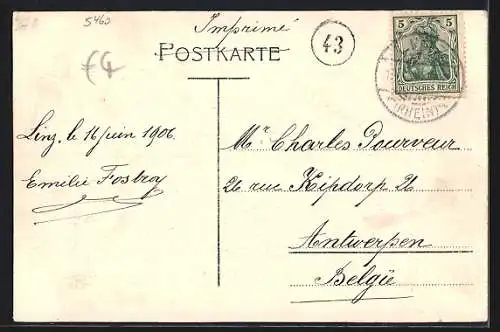 5460
Imprimé
POSTKARTE
43
5 5
DEUTSCHES REICH
(RHEIN)
€4
Linz, le 16 juin 1906.
Emilie Fosbroy
Mr Charles Pourveur
26 rue Kipdorp 26
Antwerpen
Belgie